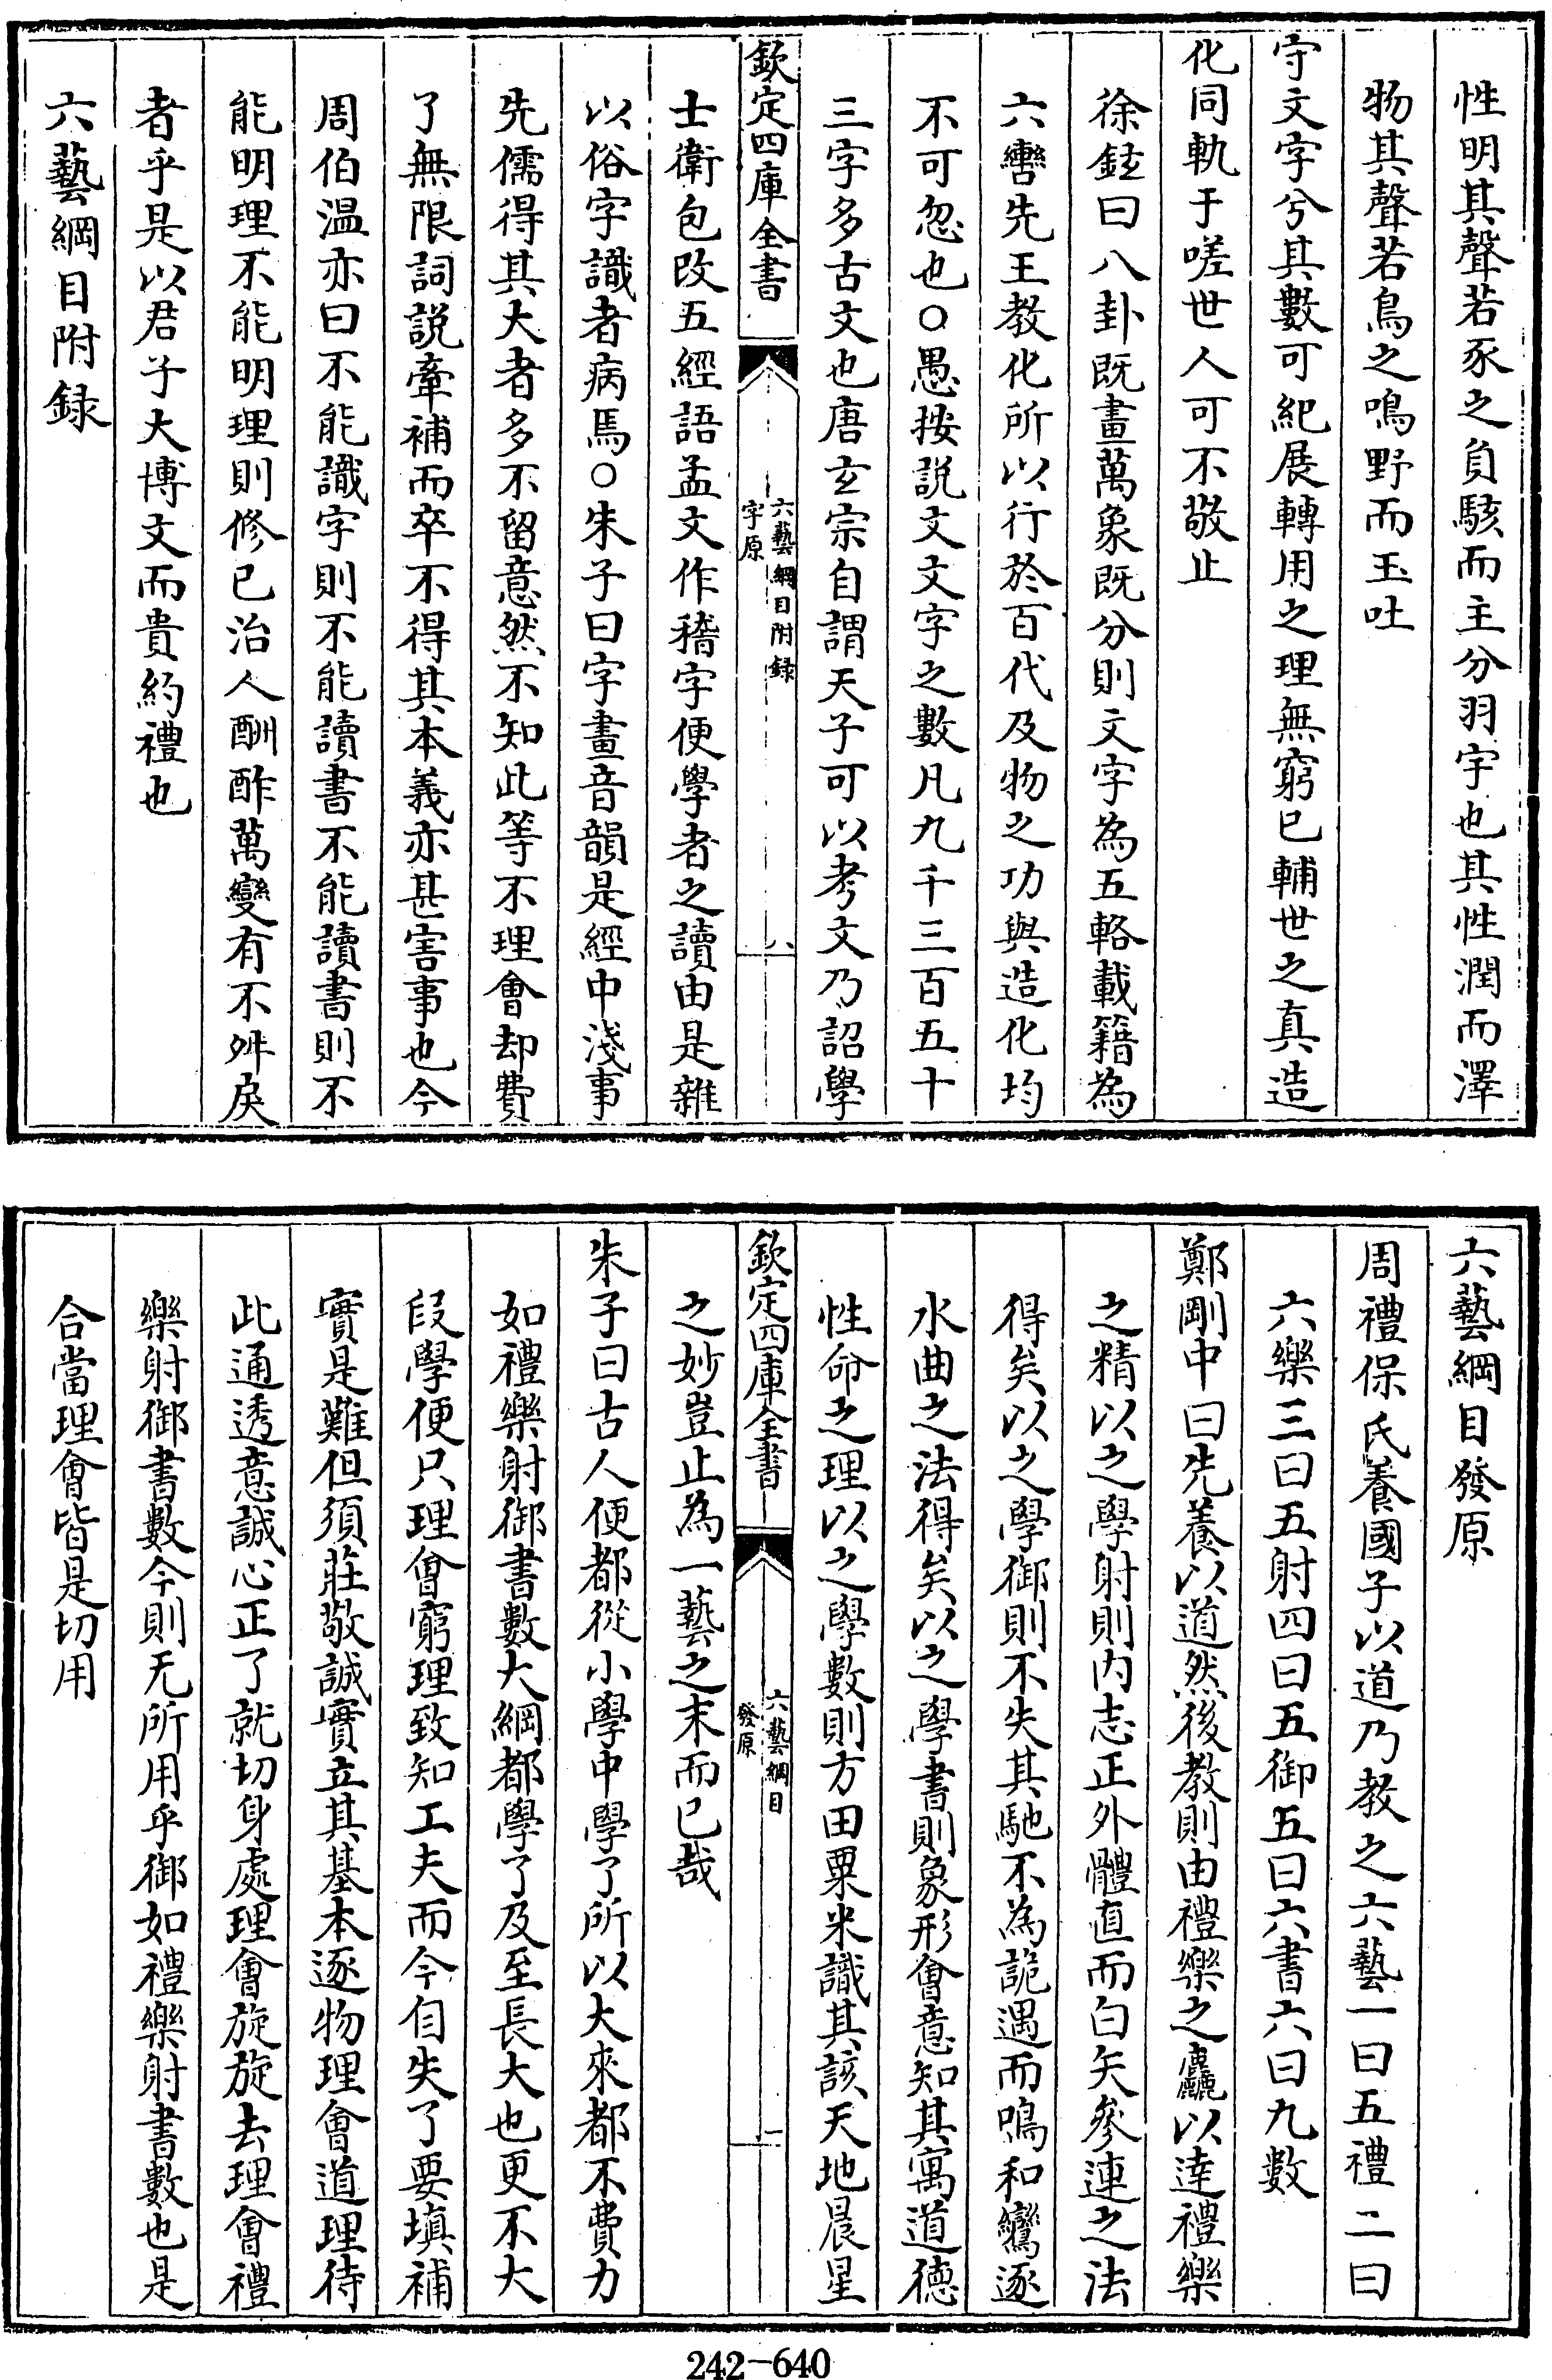 性明其聲若豕之負駭而主分羽宇也其性潤而澤
物其聲若鳥之鳴野而玉吐
守文字兮其數可紀展轉用之理無窮已輔世之真造
化同軌于嗟世人可不敬止
徐鉉曰八卦既畫萬象既分則文字為五輅載籍為
六轡先王教化所以行於百代及物之功與造化均
不可忽也○愚按説文文字之數凡九千三百五十
三字多古文也唐玄宗自謂天子可以考文乃詔學
欽定四庫全書
六藝綱目附録
字原
八
士衛包改五經語孟文作稽字便學者之讀由是雜
以俗字識者病焉○朱子曰字畫音韻是經中淺事
先儒得其大者多不留意然不知此等不理會却費
了無限詞説牽補而卒不得其本義亦甚害事也今
周伯温亦曰不能識字則不能讀書不能讀書則不
能明理不能明理則修已治人酬酢萬變有不舛戾
者乎是以君子大博文而貴約禮也
六藝綱目附録
六藝綱目發原
周禮保氏養國子以道乃教之六藝一曰五禮二曰
六樂三曰五射四曰五御五曰六書六曰九數
鄭剛中曰先養以道然後教則由禮樂之麤以達禮樂
之精以之學射則内志正外體直而白矢參連之法
得矣以之學御則不失其馳不為詭遇而鳴和鸞逐
水曲之法得矣以之學書則象形會意知其寓道德
性命之理以之學數則方田粟米識其該天地晨星
欽定四庫全書
六藝綱目
發原
一
之妙豈止為一藝之末而已哉
朱子曰古人便都從小學中學了所以大來都不費力
如禮樂射御書數大綱都學了及至長大也更不大
段學便只理會窮理致知工夫而今自失了要填補
實是難但須莊敬誠實立其基本逐物理會道理待
此通透意誠心正了就切身處理會旋旋去理會禮
樂射御書數今則无所用乎御如禮樂射書數也是
合當理會皆是切用
242-640